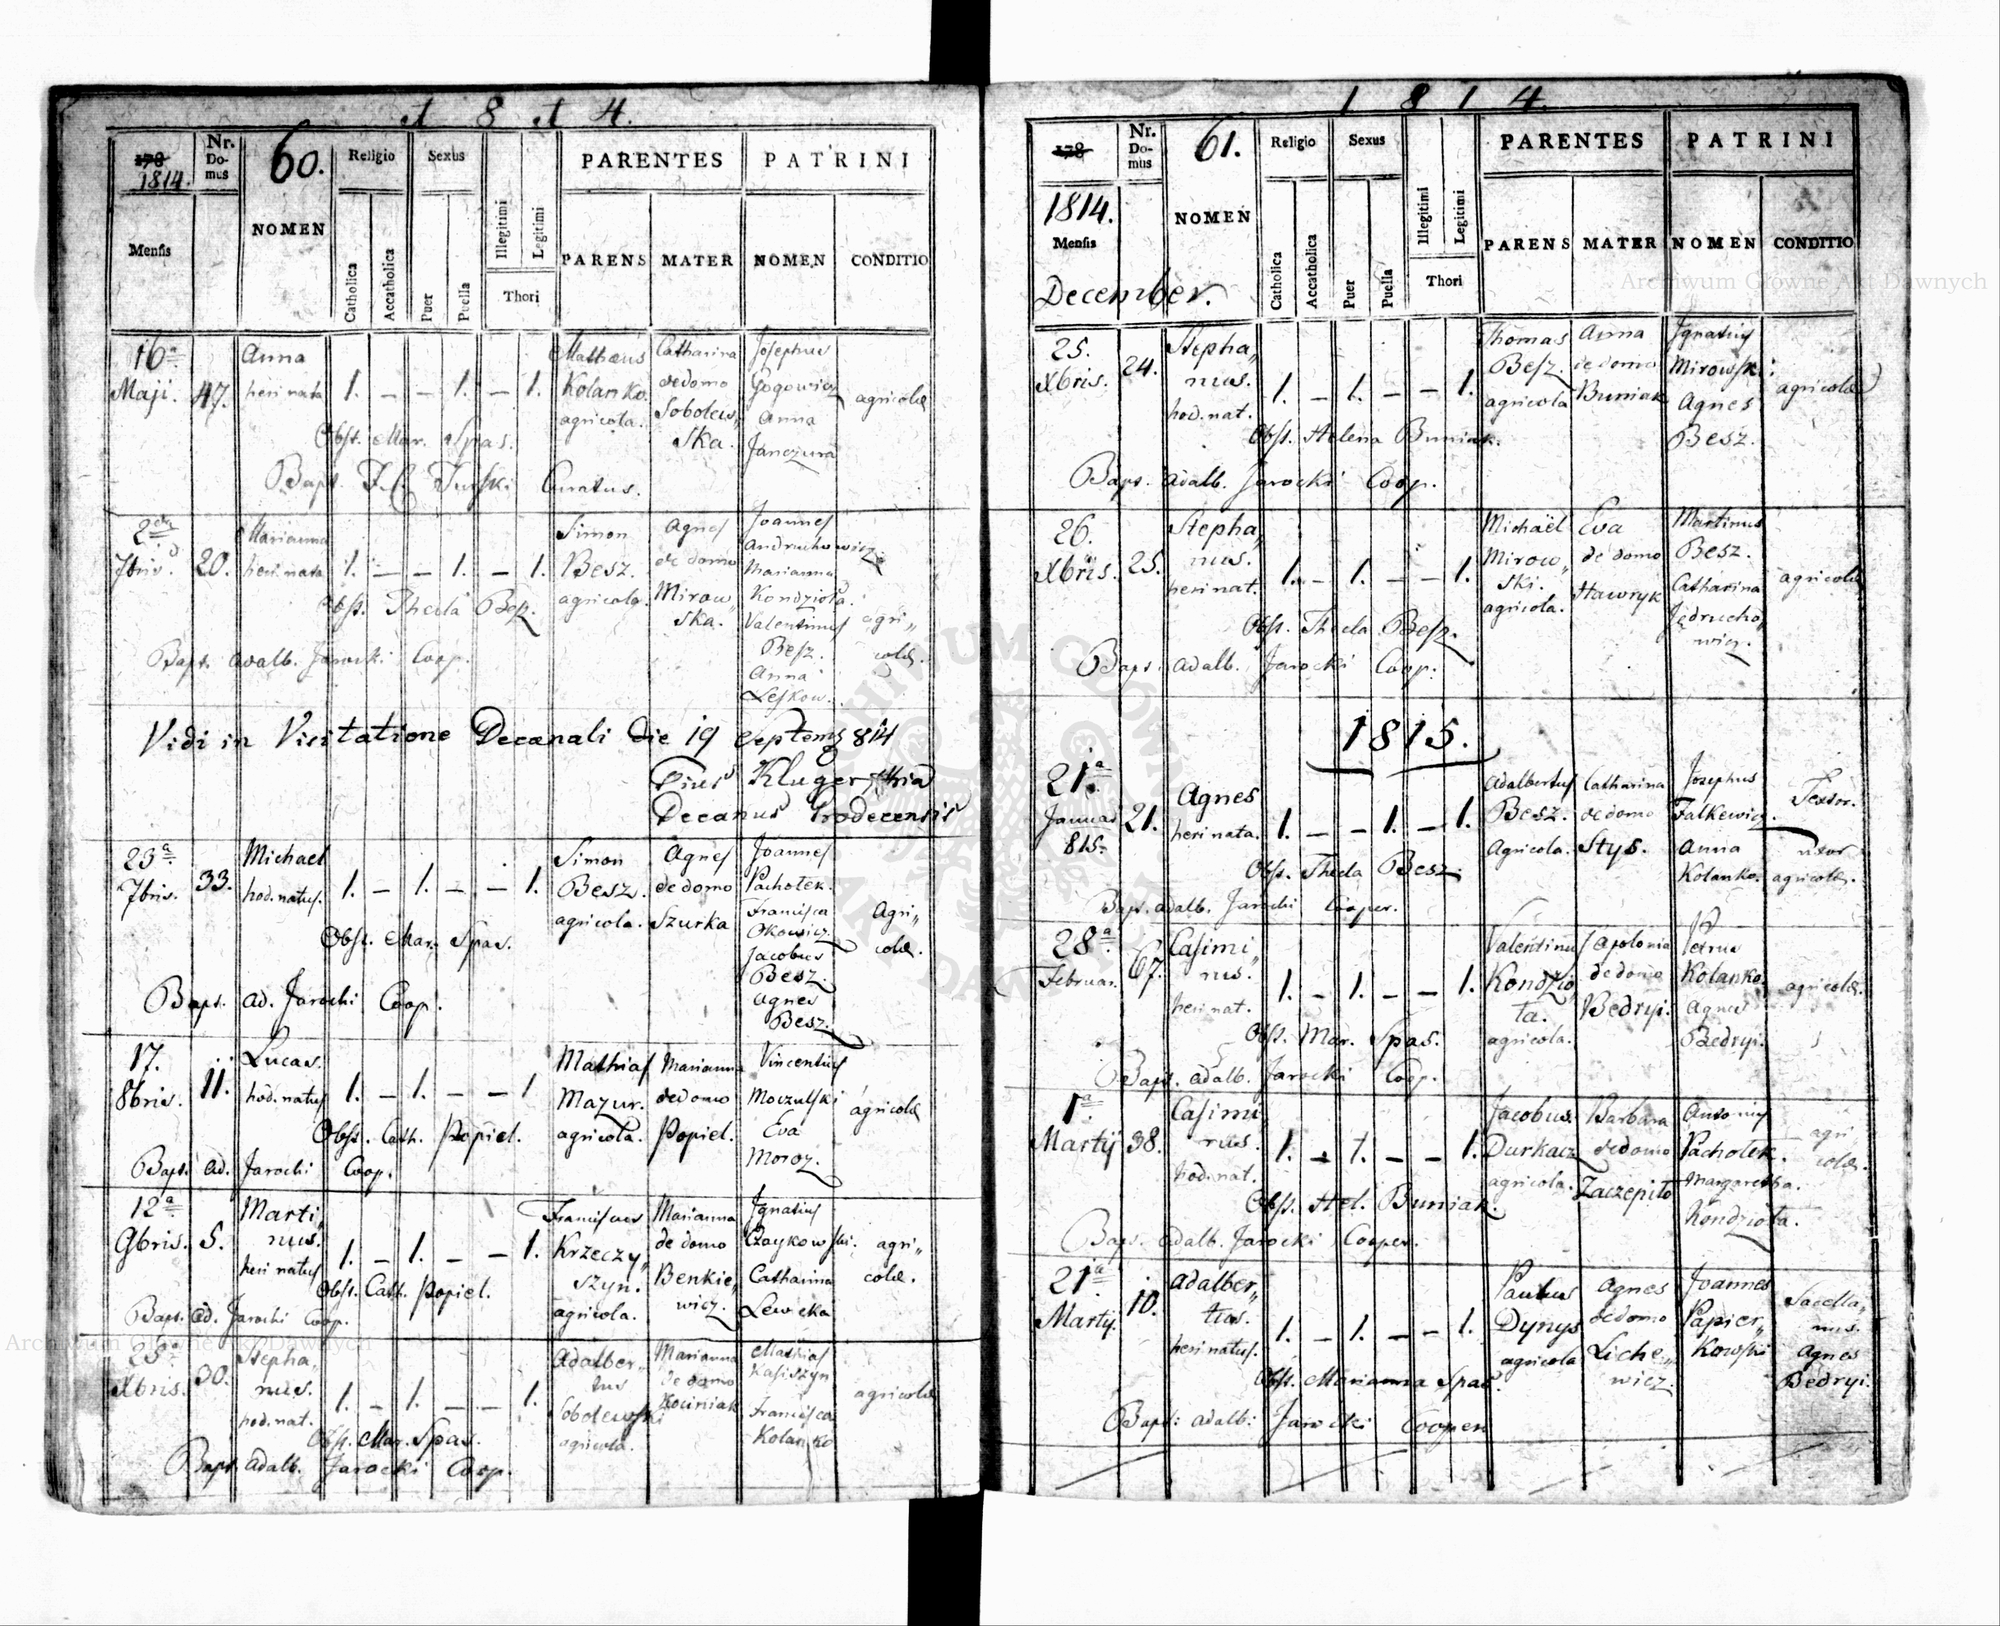 1 8 1 4.
178
1814.
Nr. Domus
60.
NOMEN
Religio
Sexus
PARENTES
PATRINI
Mensis
Catholica
Accatholica
Puer
Puella
Illegitimi
Legitimi
Thori
PARENS
MATER
NOMEN
CONDITIO
16a Maji. 47. Anna heri nata 1. – – 1. – 1.
Mathæus Kolanko. agricola.
Catharina de domo Sobolew„ ska.
Josephus Gogowicz Anna Janczura
agricolæ
Obst. Mar. Spas.
Bapt. Turski Curatus.
2da 7bris. 20. Marianna heri nata 1. – – 1. – 1.
Simon Besz. agricola.
Agnes de domo Mirow„ ska.
Joannes Andruchowicz. Marianna Kondzioła. Valentinus Besz. Anna Leskow.
agri„ colæ.
Obst. Thecla Besz.
Bapt. Adalb. Jarocki Coop.
Vidi in Visitatione Decanali die 19 Septemb 814
Pius Kluger
Decanus Grodecensis
23a 7bris. 33. Michael hod. natus. 1. – 1. – – 1.
Simon Besz. agricola.
Agnes de domo Szurka
Joannes Pachołek. Francisca Okowicz. Jacobus Besz. Agnes Besz.
Agri„ colæ.
Obst. Mar. Spas.
Bapt. Ad. Jarocki Coop.
17. 8bris. 11. Lucas. hod. natus 1. – 1. – – 1.
Mathias Mazur. agricola.
Marianna de domo Popiel.
Vincentius Moczulski Eva Moroz.
agricolæ
Obst. Cath. Popiel.
Bapt. Ad. Jarocki Coop.
12a 9bris. 5. Marti„ nus. heri natus 1. – 1. – – 1.
Franciscus Krzeczy„ szyn. agricola.
Marianna de domo Benkie„ wicz.
Ignatius Czaykowski. Catharina Lewicka
agri„ colæ.
Obst. Cath. Popiel.
Bapt. Ad. Jarocki Coop.
23a Xbris. 30. Stepha„ nus. hod. nat. 1. – 1. – – 1.
Adalber„ tus Sobolewski agricola.
Marianna de domo Kociniak
Mathias Kasiszyn Francisca Kolanko
agricolæ
Obst. Mar. Spas.
Bapt. Adalb. Jarocki Coop.
1 8 1 4.
178
Nr. Domus
61.
NOMEN
Religio
Sexus
PARENTES
PATRINI
1814.
Mensis
Catholica
Accatholica
Puer
Puella
Illegitimi
Legitimi
Thori
PARENS
MATER
NOMEN
CONDITIO
December.
25. Xbris. 24. Stepha„ nus. hod. nat. 1. – 1. – – 1.
Thomas Besz. agricola
Anna de domo Buniak
Ignatius Mirowski Agnes Besz.
agricolæ
Obst. Helena Buniak.
Bapt. Adalb. Jarocki Coop.
26. Xbris. 25. Stepha„ nus. heri nat. 1. – 1. – – 1.
Michaël Mirow„ ski. agricola.
Eva de domo Hawryk
Martinus Besz. Catharina Jędrucho„ wicz.
agricolæ
Obst. Thecla Besz.
Bapt. Adalb. Jarocki Coop.
1815.
21a Januar 815. 21. Agnes heri nata. 1. – – 1. – 1.
Adalbertus Besz. Agricola.
Catharina de domo Stys.
Josephus Falkewicz. Anna Kolanko.
Textor. uxor agricolæ.
Obst. Thecla Besz.
Bapt. Adalb. Jarocki Cooper.
28a Februar. 67. Casimi„ rus. heri nat. 1. – 1. – – 1.
Valentinus Kondzio„ ła. agricola.
Apolonia de domo Bedryi.
Petrus Kolanko. Agnes Bedryi.
agricolæ.
Obst. Mar. Spas.
Bapt. Adalb. Jarocki Coop.
1a Martij 38. Casimi„ rus. hod. nat. 1. – 1. – – 1.
Jacobus Durkacz agricola.
Barbara de domo Zaczepiło
Antonius Pachołek. Margaretha. Kondzioła.
agri colæ.
Obst. Hel. Buniak.
Bapt. Adalb. Jarocki Cooper.
21a Martij. 10. Adalber„ tus. heri natus. 1. – 1. – – 1.
Paulus Dynys agricola
Agnes de domo Liche„ wicz.
Joannes Papier„ kowski
Sacella„ nus. Agnes Bedryi.
Obst. Marianna Spas.
Bapt: Adalb: Jarocki Cooper
Archiwum Główne Akt Dawnych